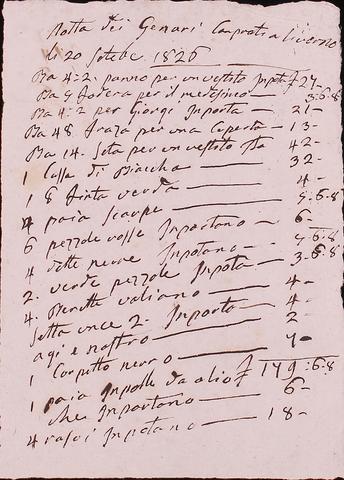 Notta dei Genari Comprati a Livorno
li 20 Sotebe 1826
Ba 4:2: panno per un vestito Inpota £ 24 -
Ba 9 fodera per il medesimo - 3:6:8
Ba 4:2 per Giorgi Inporta - 21 -
Ba 48 per una Coperta - 13 -
Ba 14. Seta per un vestito - 42 -
1 Casse di Biancha - 32 -
1 8 tinta verda - 4 -
4 paia Scarpe - 9:6:8
6 pezzole rosse Inportano - 6 -
4 dette nerre Inpotano - 9:6:8
2. verde pezzole Inpota - 3:6:8
4. Berrette valiano - 4 -
Setta once 2 - Inporta - 4 -
agi e nastro - 2 -
1 Corpetto nerro - 9 -
£ 179:6:8
1 paia da olio
che Inportano - 6 -
4 rasoi Inpotano - 18 -